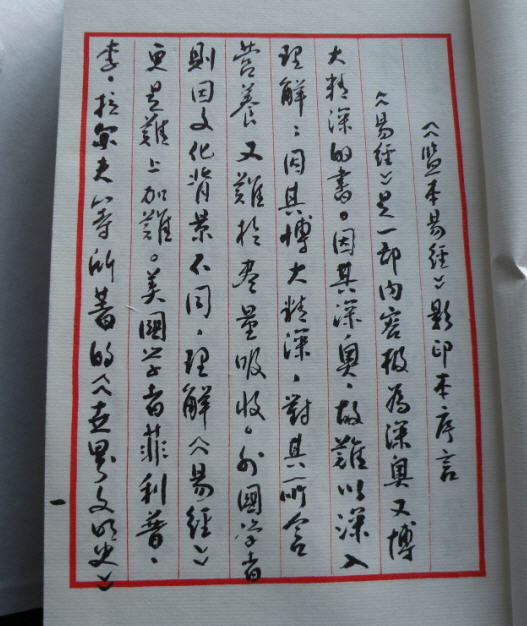 《监本易经》影印本序言
《易经》是一部内容极为深奥又博
大精深的书。因其深奥，故难以深入
理解；因其博大精深，对其所含
营养又难於尽量吸收。外國学者
則因文化背景不同，理解《易经》
更是難上加難。美國学者菲利普、
李·拉尔夫等所著的《世界文明史》
一